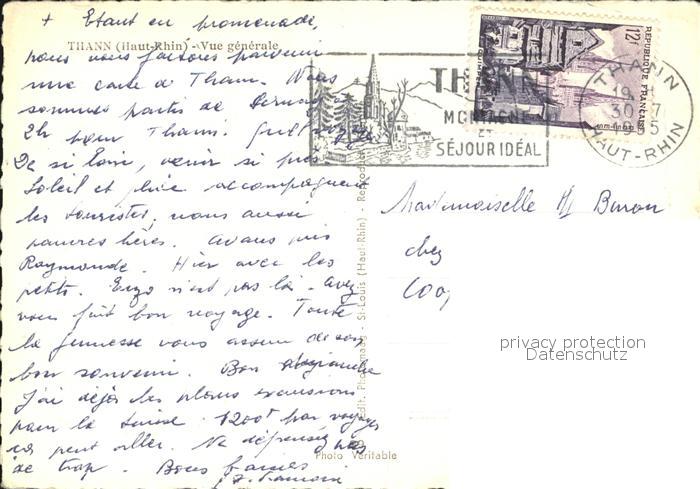 + Etant en promenade,
THANN (Haut-Rhin) - Vue générale
nous vous faisons parvenir
une carte de Thann. Nous
sommes partis de
2h pour Thann.
De si loin, venir si près
Soleil et pluie accompagnent
les touristes, nous aussi
pauvres hères. Avons pris
Raymonde. Hier avec les
petits. Enzo n'est pas là. Avez
vous fait bon voyage. Toute
la jeunesse vous assure de son
bon souvenir. Bon dimanche
J'ai déjà les plans excursions
pour la Suisse 1200f par voyage
ça peut aller. Ne dépensez pas
de trop. Bons baisers
THANN
MONTAGNE
ET
SÉJOUR IDÉAL
12f
REPUBLIQUE FRANÇAISE
QUIMPER
THANN
19
30-7
HAUT-RHIN
Mademoiselle
chez
Edit.
St-Louis (Haut-Rhin)
Photo Véritable
privacy protection
Datenschutz